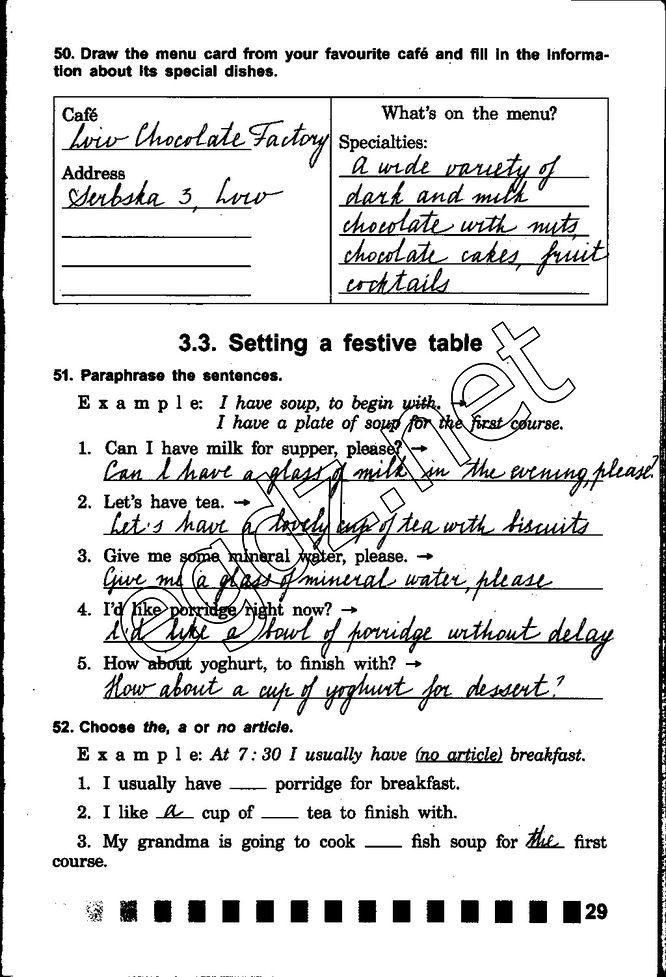 50. Draw the menu card from your favourite café and fill in the informa-
tion about its special dishes.
Café
Lviv Chocolate Factory
Address
Serbska 3, Lviv
What's on the menu?
Specialties:
A wide variety of
dark and milk
chocolate with nuts,
chocolate cakes, fruit
cocktails
3.3. Setting a festive table
51. Paraphrase the sentences.
Example: I have soup, to begin with. →
I have a plate of soup for the first course.
1. Can I have milk for supper, please? →
Can I have a glass of milk in the evening, please?
2. Let's have tea. →
Let's have a lovely cup of tea with biscuits
3. Give me some mineral water, please. →
Give me a glass of mineral water, please
4. I'd like porridge right now? →
I'd like a bowl of porridge without delay
5. How about yoghurt, to finish with? →
How about a cup of yoghurt for dessert?
52. Choose the, a or no article.
Example: At 7:30 I usually have (no article) breakfast.
1. I usually have ___ porridge for breakfast.
2. I like a cup of ___ tea to finish with.
3. My grandma is going to cook ___ fish soup for the first
course.
29
egdz.net